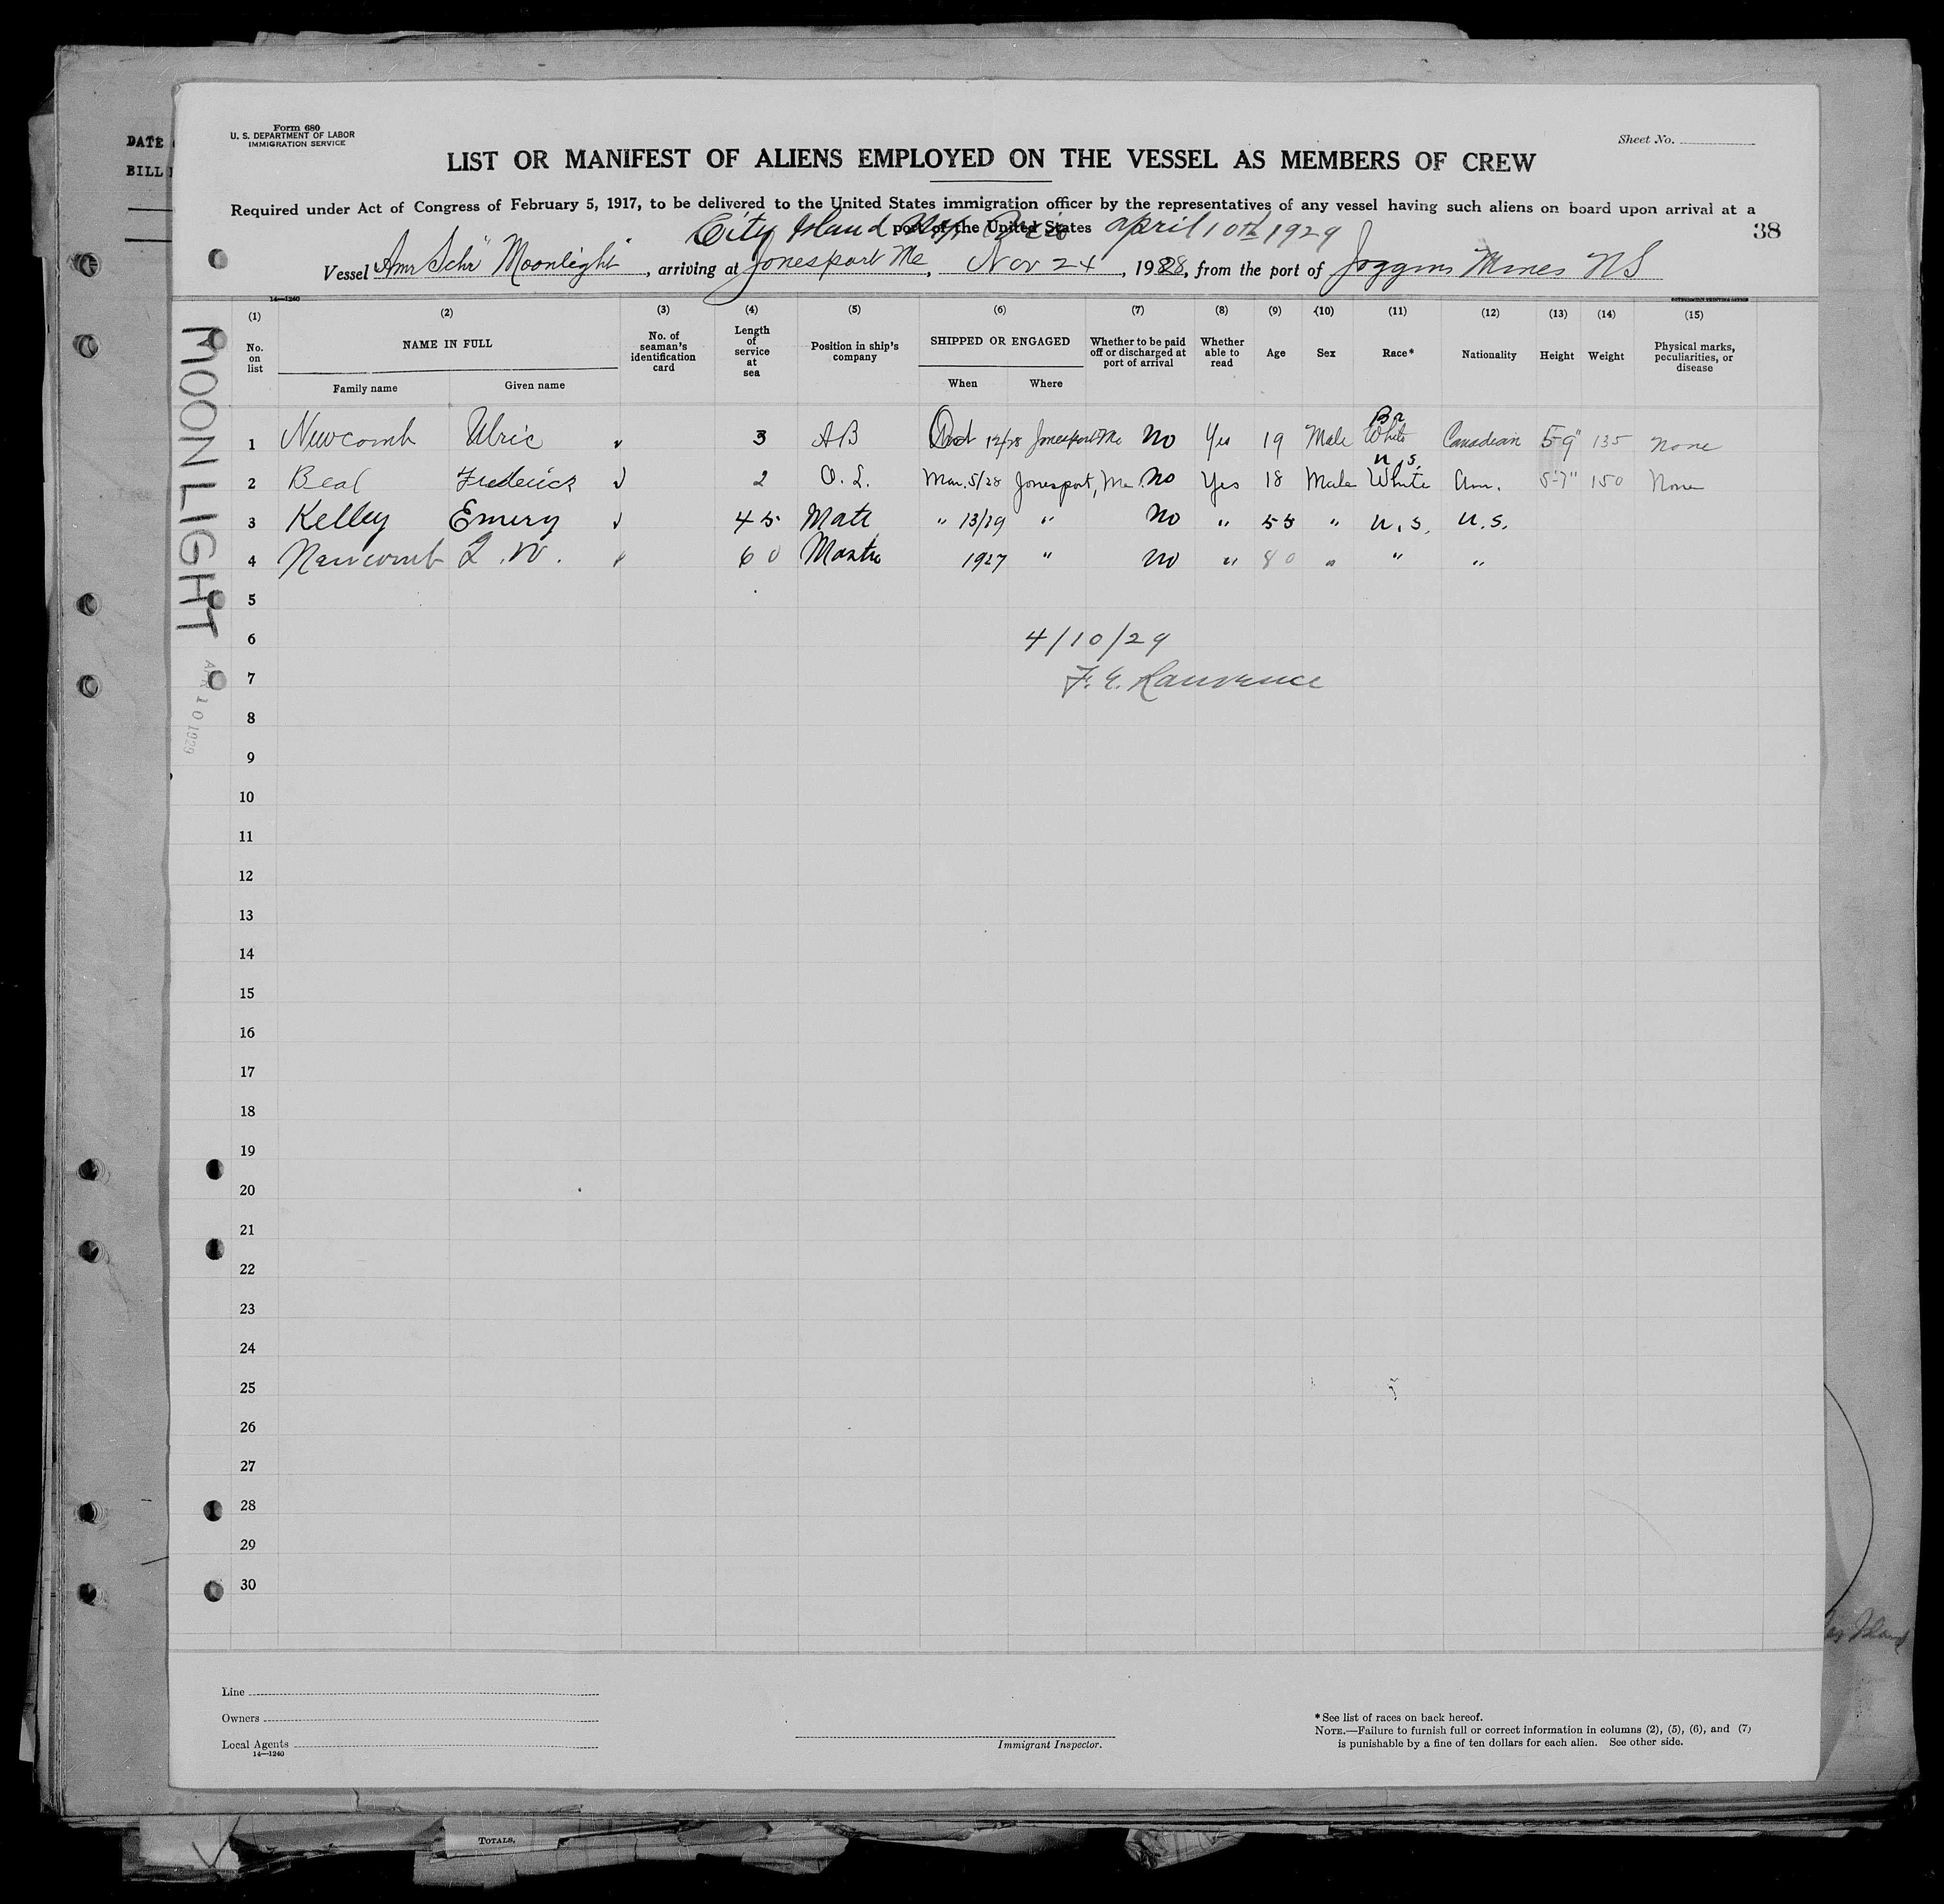 DATE
BILL
Form 680
U. S. DEPARTMENT OF LABOR
IMMIGRATION SERVICE
Sheet No.
LIST OR MANIFEST OF ALIENS EMPLOYED ON THE VESSEL AS MEMBERS OF CREW
Required under Act of Congress of February 5, 1917, to be delivered to the United States immigration officer by the representatives of any vessel having such aliens on board upon arrival at a
port of the United States
City Island April 10th 1929
38
Vessel Amr Schr "Moonlight", arriving at Jonesport Me, Nov 24, 1928, from the port of Joggins Mines NS
14—1240
(1) (2) (3) (4) (5) (6) (7) (8) (9) (10) (11) (12) (13) (14) (15)
No. on list
NAME IN FULL
Family name Given name
No. of seaman's identification card
Length of service at sea
Position in ship's company
SHIPPED OR ENGAGED
When Where
Whether to be paid off or discharged at port of arrival
Whether able to read
Age
Sex
Race*
Nationality
Height
Weight
Physical marks, peculiarities, or disease
1 Newcomb Ulric 3 AB 12/28 Jonesport Me No Yes 19 Male Br White Canadian 5-9" 135 None
2 Beal Frederick 2 O.S. Mar. 5/28 Jonesport, Me. No Yes 18 Male U.S. White Am. 5-7" 150 None
3 Kelley Emery 45 Mate " 13/29 " No " 55 " U.S. U.S.
4 Newcomb L. W. 60 Master 1927 " No " 80 " " "
5
6 4/10/29
7 F. E. Lawrence
8
9
10
11
12
13
14
15
16
17
18
19
20
21
22
23
24
25
26
27
28
29
30
MOONLIGHT
APR 10 1929
Line
Owners
Local Agents
14—1240
Immigrant Inspector.
*See list of races on back hereof.
NOTE.—Failure to furnish full or correct information in columns (2), (5), (6), and (7)
is punishable by a fine of ten dollars for each alien. See other side.
Island
TOTALS,